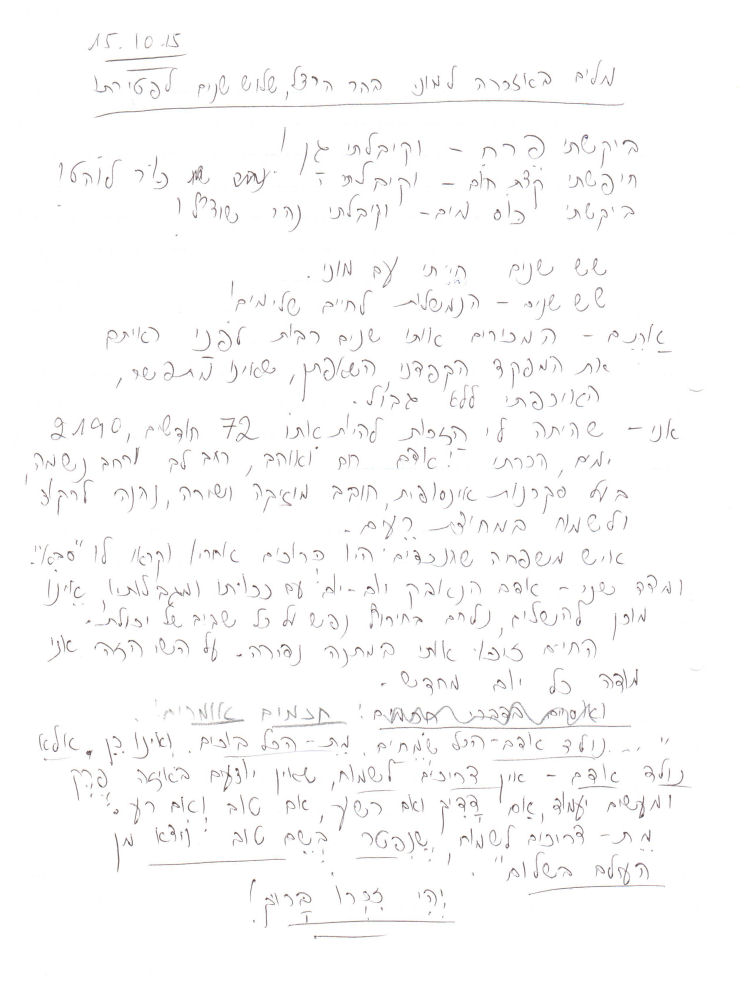 15.10.15
מלים באזכרה למוני בהר הרצל, שלוש שנים לפטירתו
ביקשתי פרח – וקיבלתי גן!
חיפשתי קצת חום – וקיבלתי כור לוהט!
ביקשתי כוס מים – וקיבלתי נהר שוצף!
שש שנים חייתי עם מוני.
שש שנים – הנמשלות לחיים שלימים!
אתם – המכירים אותו שנים רבות לפני ראיתם
את המפקד הקפדני, השאפתן, שאינו מתפשר,
האיכפתי ללא גבול.
אני – שהיתה לי הזכות להיות אתו 72 חודשים, 2190
ימים, הכרתי אדם חם ואוהב, רחב לב ורחב נשמה,
בעל סקרנות אינסופית, חובב מוזיקה ושירה, נהנה לרקוד
ולשמוח במחיצת רעים.
איש משפחה שהנכדים היו כרוכים אחריו וקראו לו "סבא".
ומצד שני – אדם הנאבק יום-יום עם נכותו ומגבלותיו אינו
מוכן להשלים, נלחם בחירוף נפש על כל שביב של יכולת.
החיים זיכו אותי במתנה נפורה. על השי הזה אני
מודה כל יום מחדש.
חכמים אומרים:
"... נולד אדם – הכל שמחים, מת – הכל בוכים, ואינו כן. אלא
נולד אדם – אין צריכים לשמוח, שאין יודעים באיזה פרק
ומעשים יעמוד, אם צדיק ואם רשע, אם טוב ואם רע.
מת – צריכים לשמוח, שנפטר בשם טוב ויצא מן
העולם בשלום".
יהי זכרו ברוך!